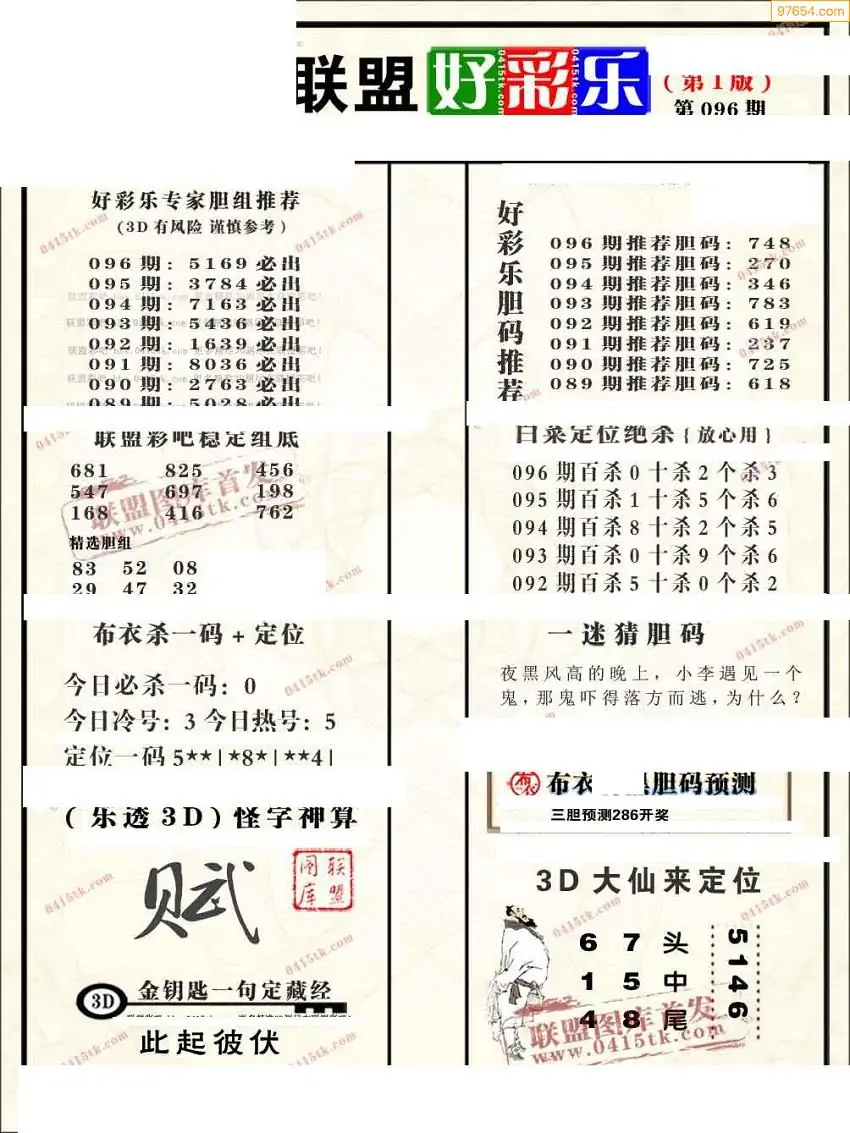 97654.com
联盟好彩乐
(第1版)
第096期
好彩乐专家胆组推荐
(3D有风险 谨慎参考)
096期: 5169必出
095期: 3784必出
094期: 7163必出
093期: 5436必出
092期: 1639必出
091期: 8036必出
090期: 2763必出
089期: 5028必出
联盟彩吧稳定组底
681 825 456
547 697 198
168 416 762
精选胆组
83 52 08
29 47 32
布衣杀一码+定位
今日必杀一码: 0
今日冷号: 3 今日热号: 5
定位一码 5**|*8*|**4|
(乐透3D)怪字神算
赋
联盟图库
3D 金钥匙一句定藏经
此起彼伏
好彩乐胆码推荐
096期推荐胆码: 748
095期推荐胆码: 270
094期推荐胆码: 346
093期推荐胆码: 783
092期推荐胆码: 619
091期推荐胆码: 237
090期推荐胆码: 725
089期推荐胆码: 618
白菜定位绝杀{放心用}
096期百杀0十杀2个杀3
095期百杀1十杀5个杀6
094期百杀8十杀2个杀5
093期百杀0十杀9个杀6
092期百杀5十杀0个杀2
一迷猜胆码
夜黑风高的晚上，小李遇见一个
鬼，那鬼吓得落方而逃，为什么？
布衣
胆码预测
三胆预测286开奖
3D大仙来定位
6 7 头
1 5 中
4 8 尾
5146
联盟图库首发
www.0415tk.com